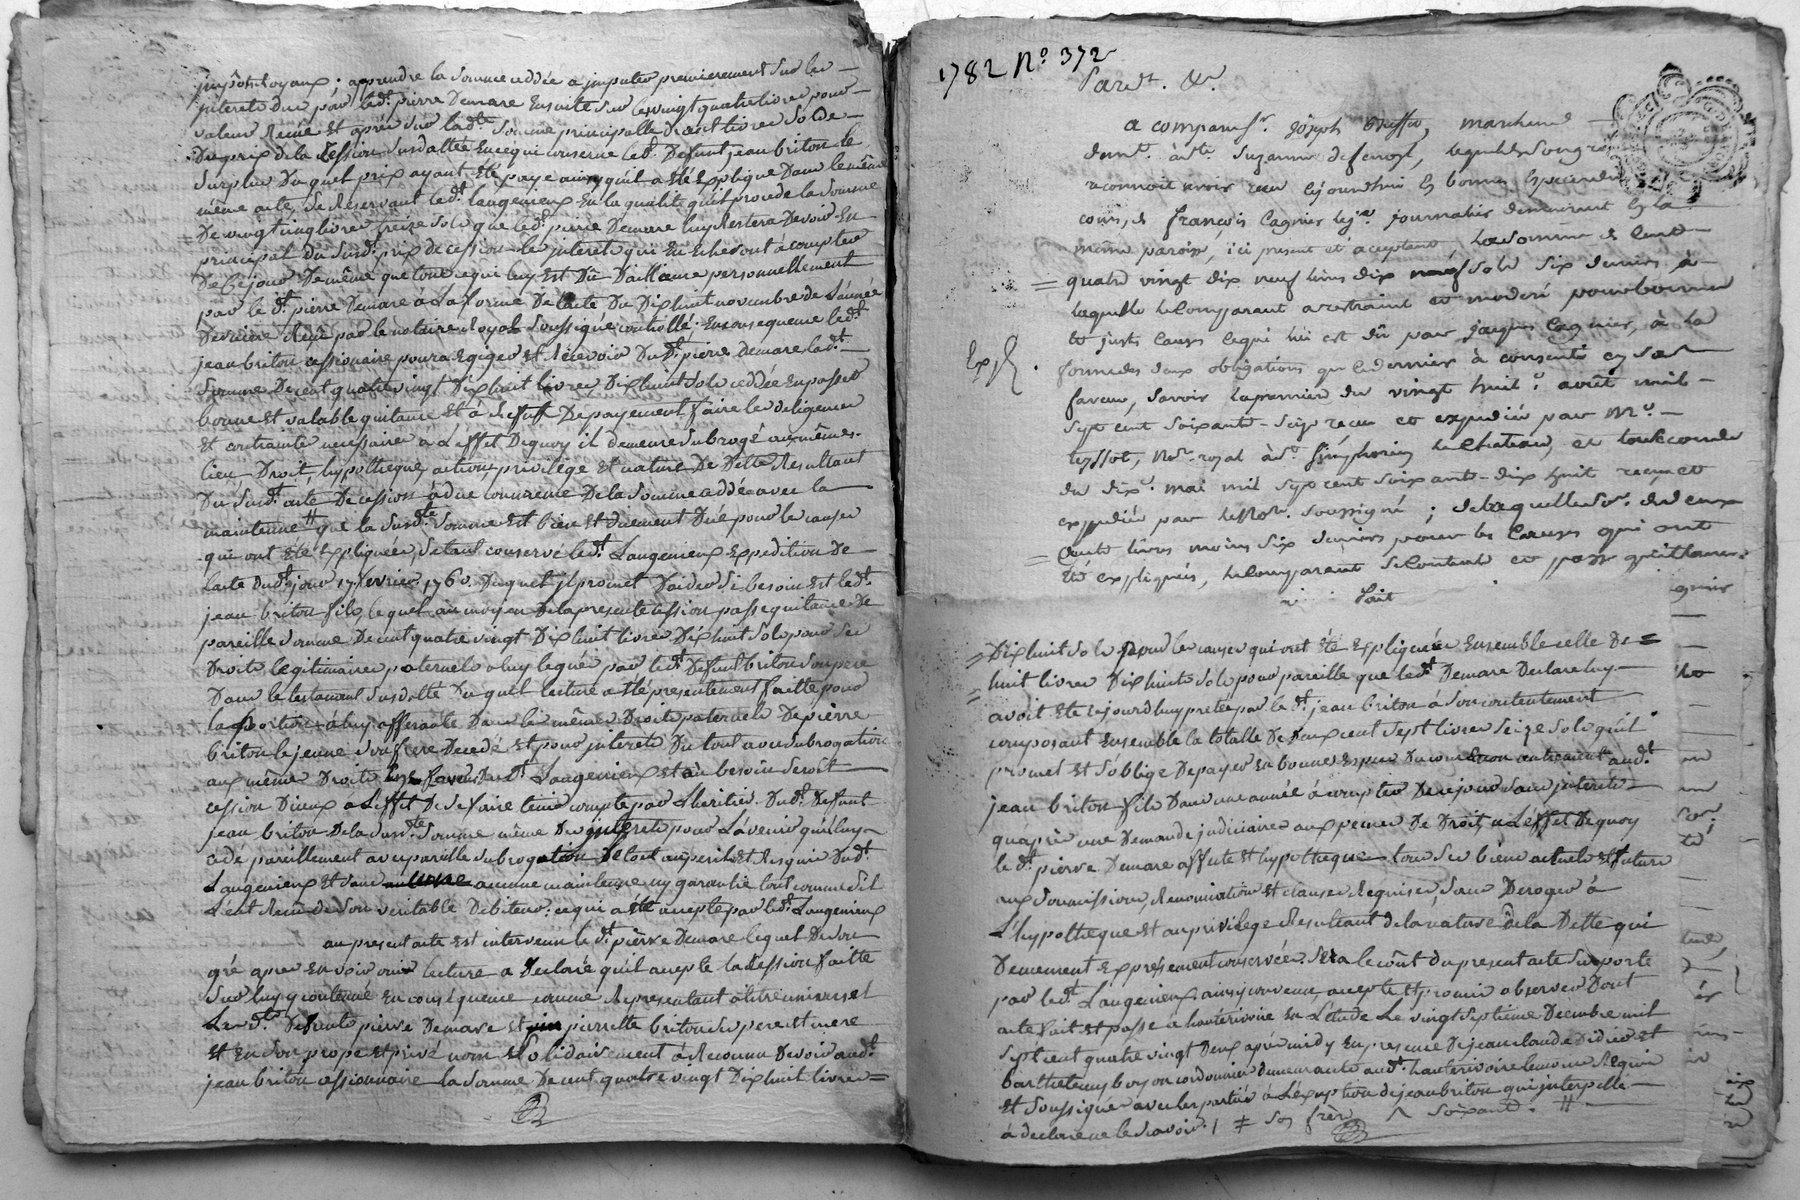 impôts loyaux ; apprendre la somme ceddée a imputer premierement sur les
interets dus par led.t pierre Demare Ensuite sur les vingt quatre livres pour
valeur Reçue Et après sur lad.te somme principalle de cent livres solde
Du prix de la Cession susdattée En ce qui concerne led.t Defunt jean briton le
surplus Duquel prix ayant Eté payé ainsy qu'il a Eté Expliqué Dans le même
même acte, se Reservant led.t Laugenieux En la qualité qu'il procede la somme
De vingt cinq livres treize sols que led.t pierre Demare luy Restera Devoir En
principal du susd.t prix de cession les interets qui En Echeront a compter
De ce jour De même que tout ce qui luy Est Dû D'ailleurs personnellement
par le d.t pierre Demare à la forme De l'acte du Dix huit novembre de L'année
Derniere Reçû par le notaire Royal soussigné controllé : En consequence led.t
jean briton cessionaire pourra Exiger et Recevoir Dud.t pierre Demare lad.te
somme De cent quatre vingt Dix huit livres Dix huit sols ceddée En passer
bonne et valable quitance Et à deffaut De payement faire les diligences
Et contrainte necessaire à L'effet De quoy il demeure subrogé aux mêmes
lieu, Droit, hypotheque, action, privilege Et nature De Dette Resultant
Du susd.t acte De cession à due concurrence De la somme ceddée avec la
maintenue # que la susd.te somme Est bien Et duement Dûe pour les causes
qui ont Eté Expliquées, se tant conservé led.t Laugenieux Expedition De
l'acte dud.t jour 17 fevrier 1760. Duquel il promet D'aider si besoin Est led.t
jean briton fils, lequel au moyen De la presente cession passe quitance De
pareille somme De cent quatre vingt Dix huit livres Dix huit sols pour ses
Droits legitimaires paternels a luy legués par led.t Defunt briton son pere
Dans le testament susdatté Duquel lecture a Eté presentement faitte pour
la portion a luy afferante Dans les mêmes Droits paternels De pierre
briton le jeune son frere Decedé Et pour interets Du tout avec subrogation
aux même Droits En faveur dud.t Laugenieux et au besoin seroit
cession D'iceux a L'effet De se faire tenir compte par L'heritier Dud.t Defunt
jean briton De la susd.te somme même Des interets pour L'avenir qu'il luy
cede pareillement avec pareille subrogation De tout aux perils et Risques Dud.t
Laugenieux et sans aucune maintenue ny garantie tout comme s'il
L'eut Reçu de son veritable Debiteur : ce qui a été accepté par led.t Laugenieux
au present acte est intervenu le d.t pierre Demare lequel De son
gré après En avoir ouï lecture a Declaré qu'il accepte la Cession faitte
sur luy y contenue En consequence comme Representant a titre universel
Lesd.ts Defunts pierre Demare et pierrette briton ses pere et mere
Et En son propre et privé nom Et solidairement à Reconnu Devoir aud.t
jean briton cessionnaire la somme De cent quatre vingt Dix huit livres =
1782 N.o 372
Pard.t &.a
a comparu s.r joseph marchand
dem.t à s.te suzanne lequel de son gré
reconnoit avoir reçu cejourdhui en bonnes especes de
cours, de francois Cagnier journalier demeurant en la
meme paroisse, ici present et acceptant, la somme de cent
= quatre vingt dix neuf livres dix neuf sols six deniers à
laquelle le comparant a restraint et moderé pour bonnes
et justes causes ce qui lui est dû par jacques Cagnier, à la
Exp.é
forme des deux obligations que ce dernier à consenti en sa
faveur, savoir la premiere du vingt huit.e aoüt mil
sept cent soixante - seize reçue et expediée par M.e
teyssot, N.re royal à s.t simphorien le chateau, et la seconde
du dix.e mai mil sept cent soixante - dix huit reçue et
expediée par le N.re soussigné ; de laquelle so.e de deux
= Cents livres moins six deniers pour les Causes qui ont
été expliquées, le comparant se contente et passe quittance
fait
= Dix huit sols pour les causes qui ont Eté Expliquées Ensemble celle De =
= huit livres Dix huit sols pour pareille que led.t Demare Declare luy
avoit Eté cejourd'huy pretée par le d.t jean briton à son contentement
composant Ensemble la totalle De Deux cent sept livres seize sols qu'il
promet et s'oblige De payer En bonnes Especes Du cours aud.t
jean briton fils Dans une année à compter De ce jour sans interets
qu'après une Demande judiciaire aux peines De Droit, a L'effet De quoy
le d.t pierre Demare affecte Et hypotheque tous ses biens actuels et futurs
aux soumissions, Renonciations Et clauses Requises, sans Deroger à
L'hypotheque Et au privilege Resultant de la nature De la Dette qui
Demeurent Expressement conservés. sera le coût du present acte supporté
par led.t Laugenieux ainsy convenu, accepté Et promis observer Dont
acte fait et passé a hauterivoire En L'étude Le vingt septieme Decembre mil
sept cent quatre vingt Deux après midy En presence De jean claude Didier et
barthelemy boyon cordonnier demeurants aud.t hauterivoire temoins Requis
Et soussignés avec les parties à L'exception de jean briton qui interpellé
à declaré ne le savoir. / ≠ son frère ^ soixante. #